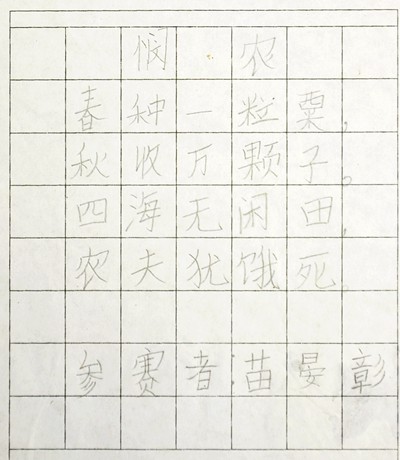 悯农
春种一粒粟,
秋收万颗子。
四海无闲田,
农夫犹饿死
参赛者:苗晏彰